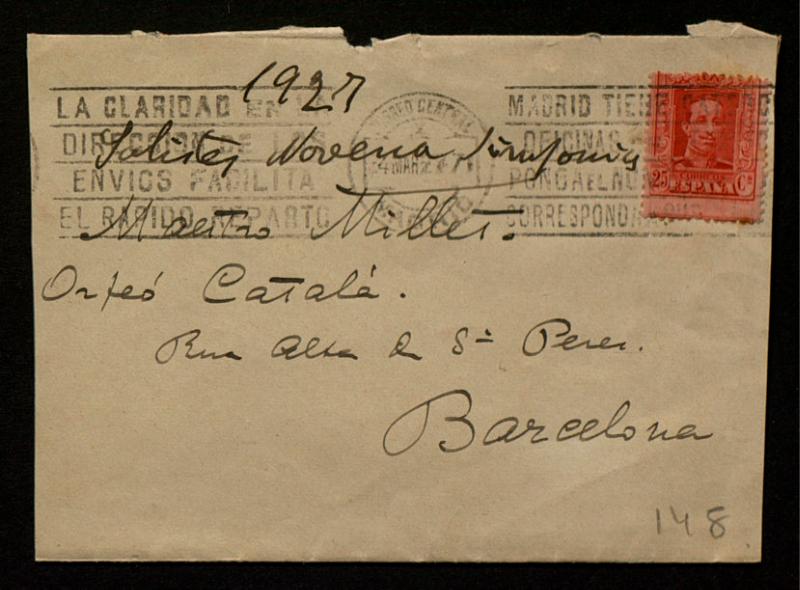 1927
LA CLARIDAD EN
DIRECCION DE LOS
ENVIOS FACILITA
EL RAPIDO REPARTO
CORREO CENTRAL
4 MAR 27
MADRID TIENE
OFICINAS
PONGA EL
CORRESPONDA
CORREOS
25 ESPAÑA Cs
Solistes Novena Simfonia
Maestro Millet.
Orfeó Català.
Rua Alta de Sn Pere.
Barcelona
148